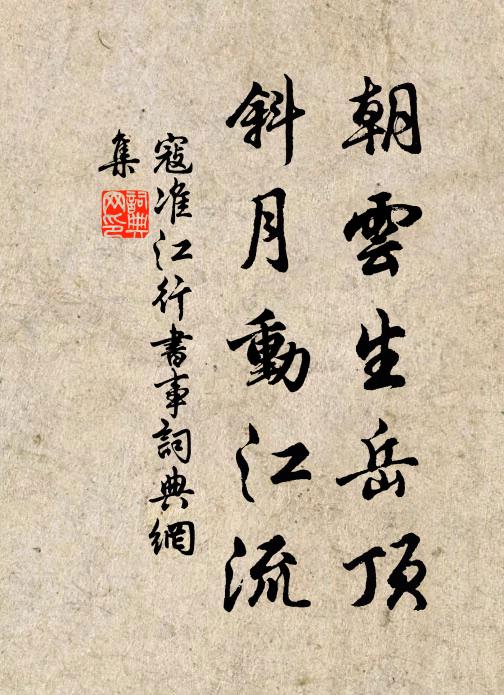 朝雲生岳頂
斜月動江流
寇准江行書事詞典網
集
詞典
网印